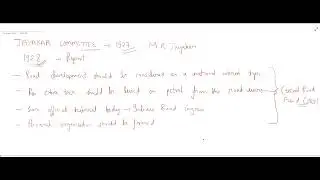 JAYAKAR COMMITTEE → 1927 M R Jayakar
1928 → Report
- Road development should be considered as a national interest
- An extra tax should be levied on petrol from the road users
- Semi official technical body → Indian Road Congress
- Research organisation should be formed
Central Road
Fund